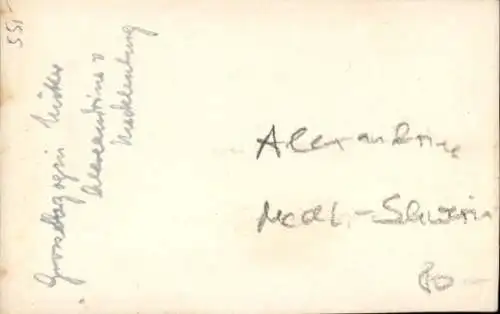 55,-
Grossherzogin Mutter
Alexandrine v
Mecklenburg
Alexandrine
Meckl.-Schwerin